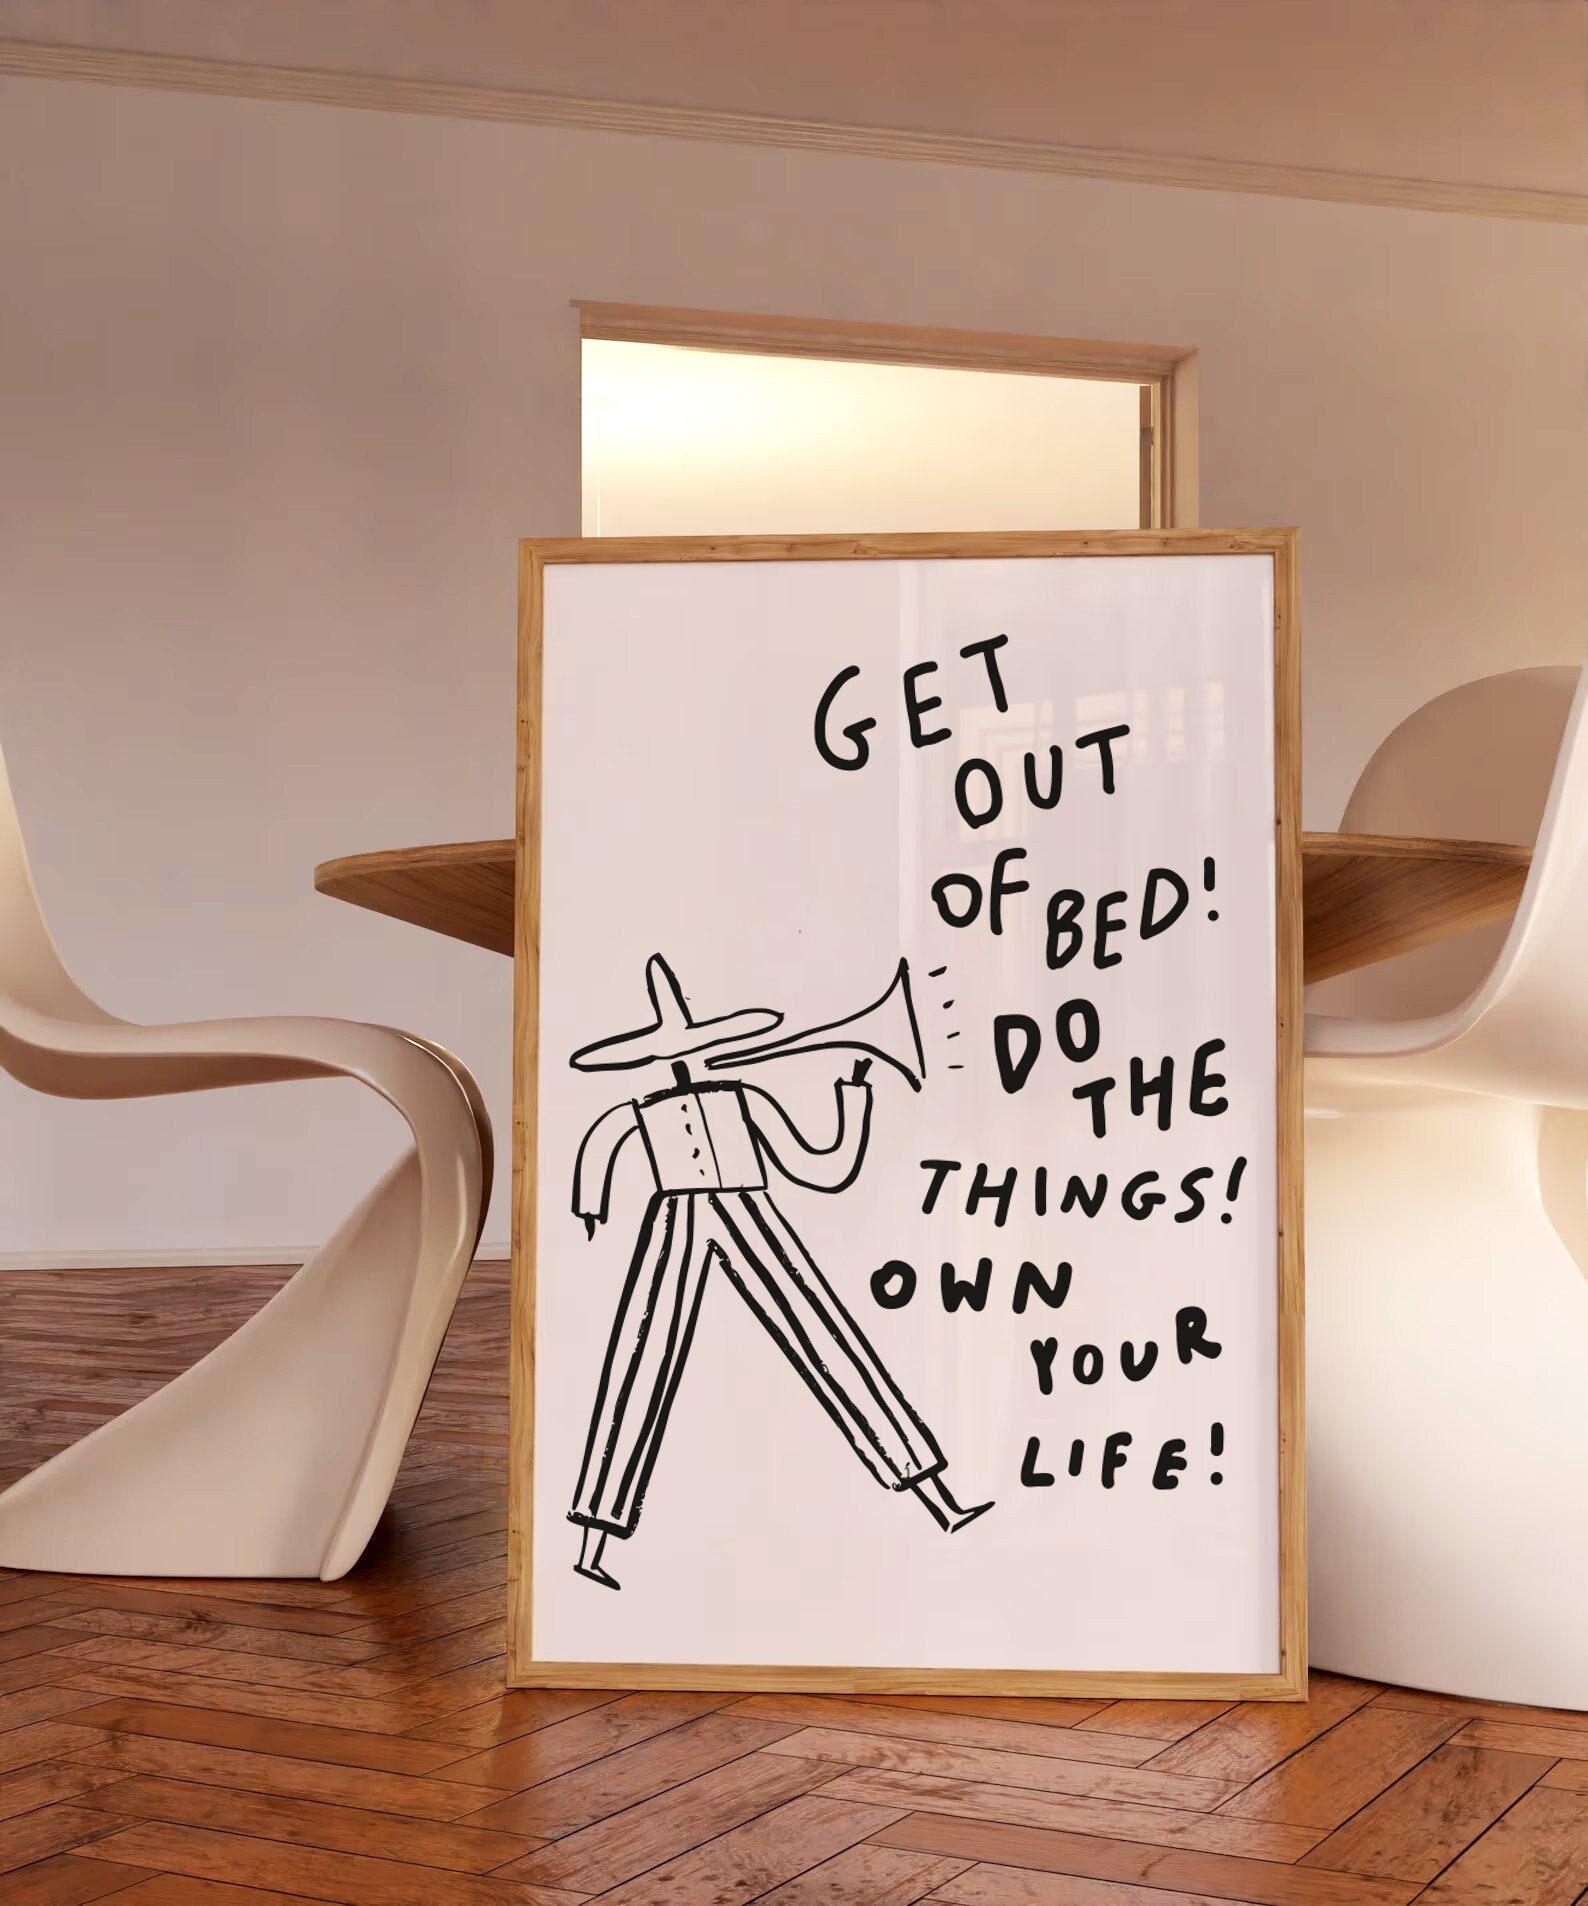 GET
OUT
OF BED!
DO
THE
THINGS!
OWN
YOUR
LIFE!